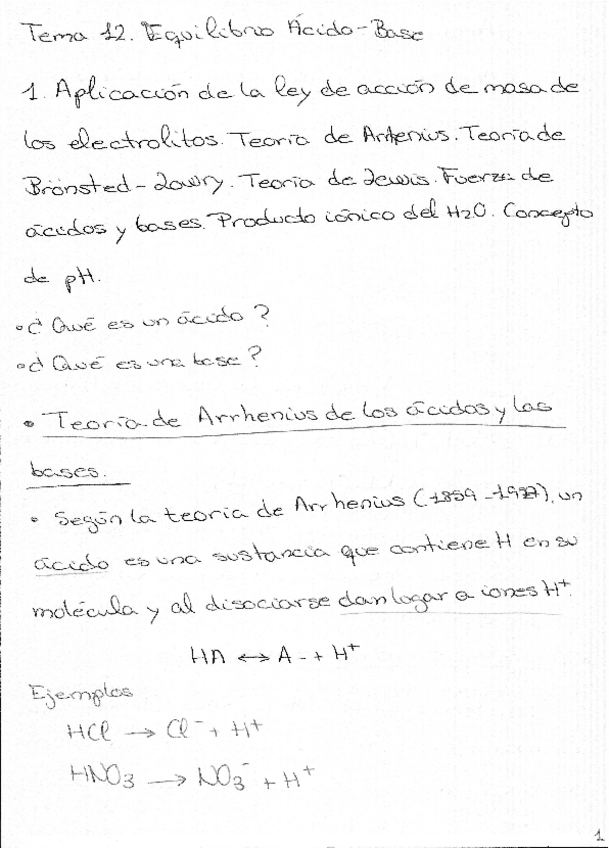 Tema 12. Equilibrio Ácido-Base
1. Aplicación de la ley de acción de masa de
los electrolitos. Teoría de Arrhenius. Teoría de
Brönsted-Lowry. Teoría de Lewis. Fuerza de
ácidos y bases. Producto iónico del H2O. Concepto
de pH.
• ¿Qué es un ácido?
• ¿Qué es una base?
• Teoría de Arrhenius de los ácidos y las
bases.
• Según la teoría de Arrhenius (1859-1927), un
ácido es una sustancia que contiene H en su
molécula y al disociarse dan lugar a iones H⁺.
HA ↔ A- + H⁺
Ejemplos
HCl → Cl⁻ + H⁺
HNO3 → NO3⁻ + H⁺
1